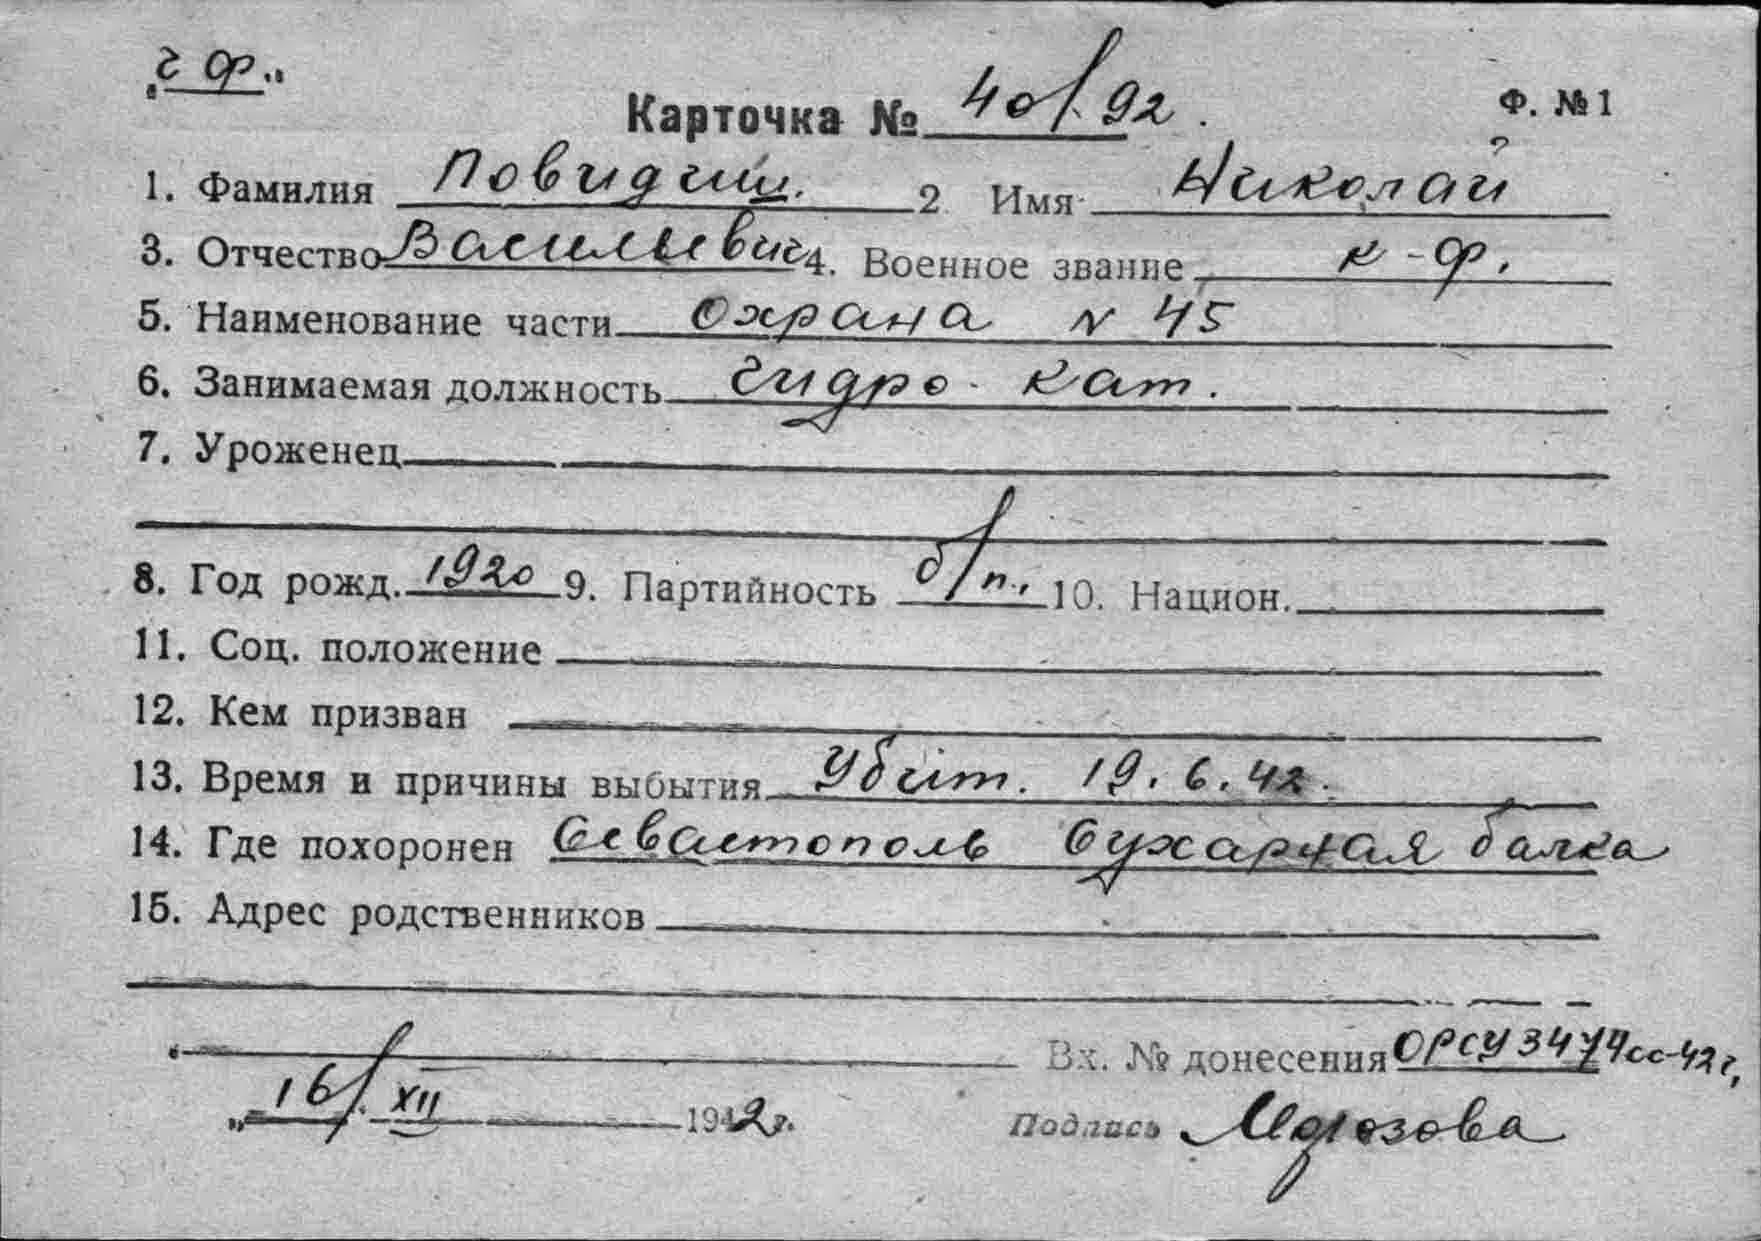 „ч ф.“
Карточка № 40/92. Ф. №1
1. Фамилия Повидиш. 2 Имя Николай ?
3. Отчество Васильевич 4. Военное звание к-ф.
5. Наименование части Охрана N 45
6. Занимаемая должность гидро-кат.
7. Уроженец
8. Год рожд. 1920 9. Партийность б/п., 10. Национ.
11. Соц. положение
12. Кем призван
13. Время и причины выбытия Убит. 19.6.42.
14. Где похоронен Севастополь Сухарная балка
15. Адрес родственников
Вх. № донесения ОРСУ 3474сс-42г,
„16/XII 1942г. Подпись Морозова